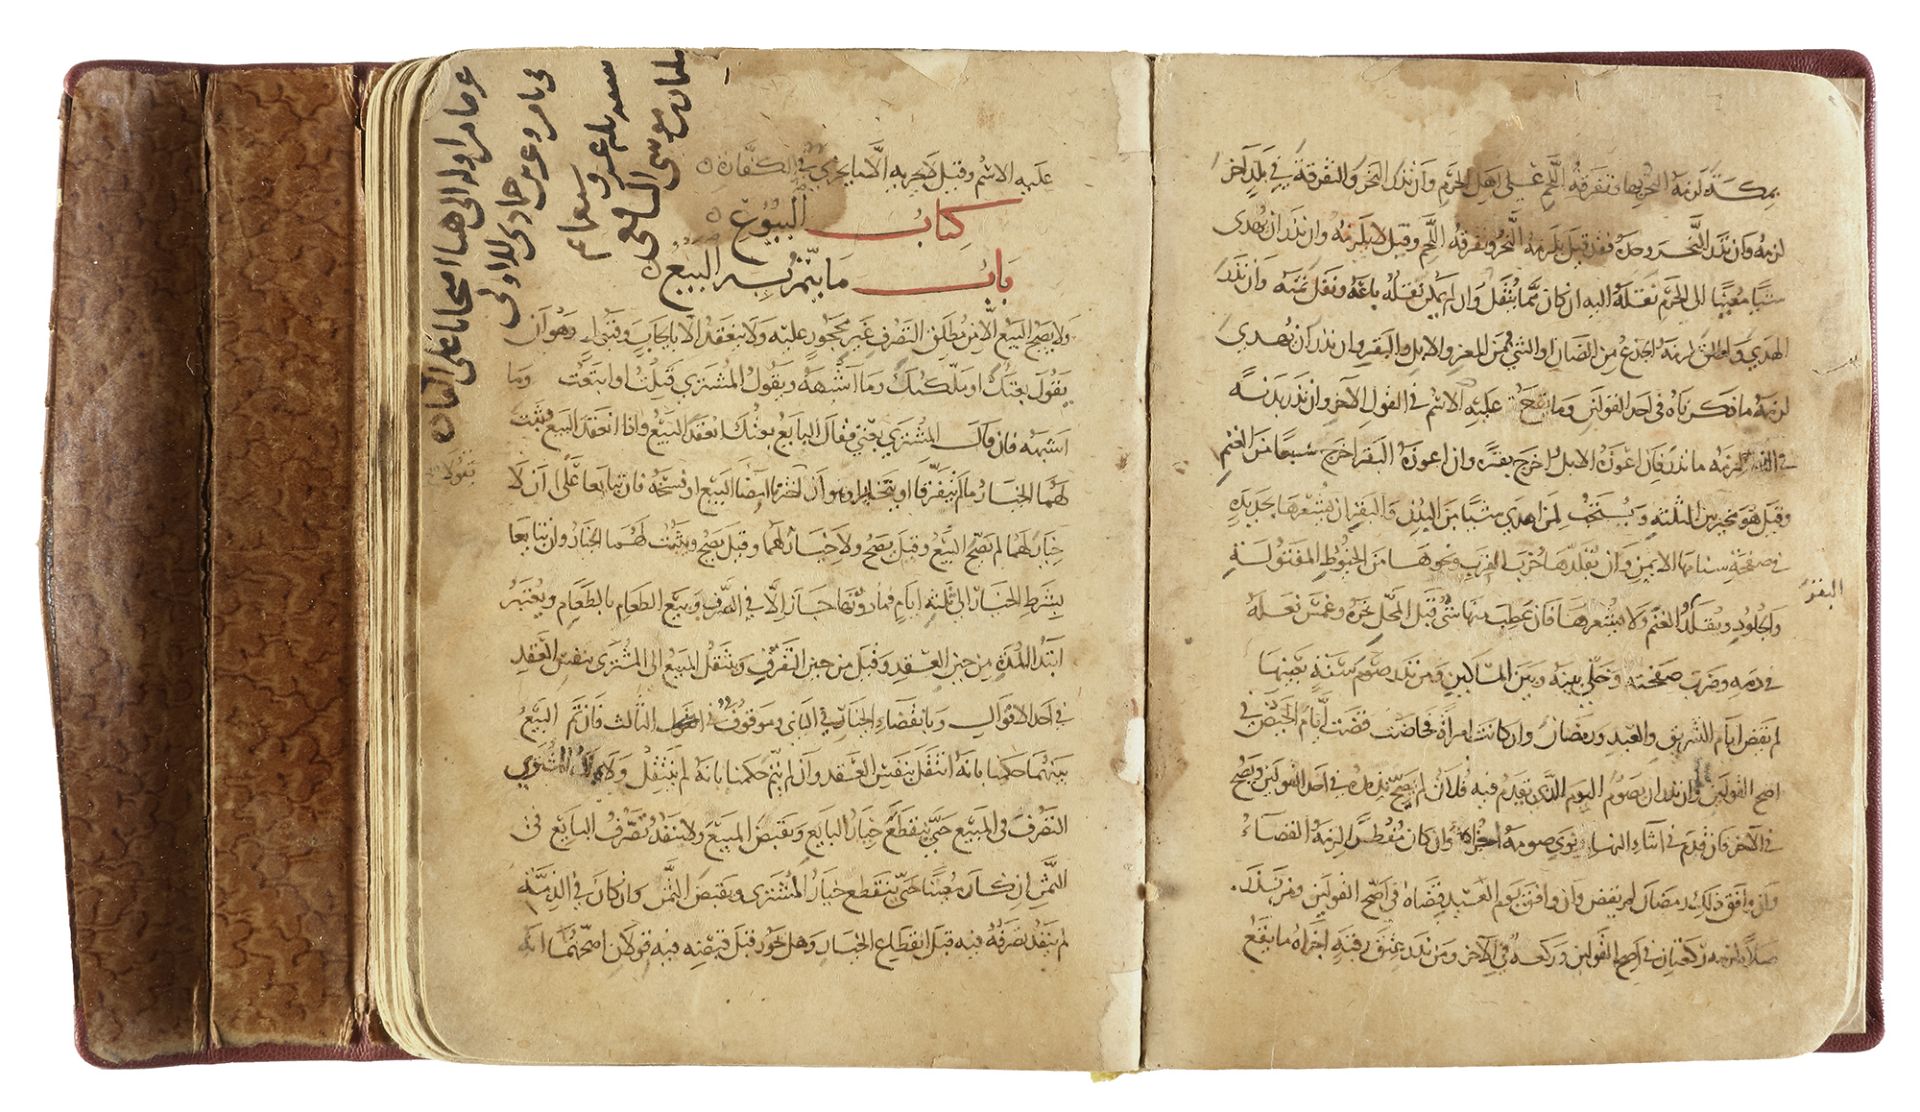 بمكة لزمه النحر بها وتفرقة اللحم على اهل الحرم وان نذر النحر والتفرقة في بلد اخر
لزمه وان نذر النحر وحده فقد قيل يلزمه النحر وتفرقة اللحم وقيل لا يلزمه وان نذر ان يهدى
شيا معينا الى الحرم نقله اليه ان كان مما ينقل وان لم يمكن نقله باعه ونقل ثمنه وان نذر
الهدي واطلق لزمه الجذع من الضان او الثني من المعز والابل والبقر وان نذر ان يهدي
لزمه ما ذكرناه في احد القولين وما يقع عليه الاسم في القول الآخر وان نذر بدنة
في الذمة لزمه ما نذر فان اعوزه الابل اخرج بقرة وان اعوزه البقر اخرج سبعا من الغنم
وقيل هو مخير بين الثلثة ويستحب لمن اهدي شيا من البدن والبقر ان يشعرها بحديدة
في صفحة سنامها الايمن وان يقلدها خرب القرب ونحوها من الخيوط المفتولة
والجلود ويقلد الغنم ولا يشعرها فان عطب منها شي قبل المحل نحره وغمس نعله
البقر
في دمه وضرب صفحته وخلي بينه وبين المساكين ومن نذر صوم سنة بعينها
لم يقض ايام التشريق والعيد ورمضان وان كانت امراة فحاضت قضت ايام الحيض في
اصح القولين وان نذر ان يصوم اليوم الذي يقدم فيه فلان لم يصح نذره في احد القولين ويصح
في الآخر فان قدم في اثناء النهار ينوي صومه اجزاه وان كان مفطرا لزمه القضاء
وان وافق ذلك رمضان لم يقض وان وافق يوم العيد قضاه في اصح القولين ومن نذر
صلاة لزمه ركعتان في اصح القولين وركعة في الآخر ومن نذر عتق رقبة اجزاه ما يقع
عليه الاسم وقيل لا يجزيه الا ما يجزي في الكفارة
كتاب البيوع
باب ما يتم به البيع
ولا يصح البيع الا من مطلق التصرف غير محجور عليه ولا ينعقد الا بايجاب وقبول وهو ان
يقول بعتك او ملكتك وما اشبهه ويقول المشتري قبلت او ابتعت وما
اشبهه فان قال المشتري بعني فقال البايع بعتك انعقد البيع واذا انعقد البيع ثبت
لهما الخيار ما لم يتفرقا او يتخايرا وهو ان يختارا امضا البيع او فسخه فان تبايعا على ان لا
خيار لهما لم يصح البيع وقيل يصح ولا خيار لهما وقيل يصح ويثبت لهما الخيار وان تبايعا
بشرط الخيار الى ثلثة ايام فما دونها جاز الا في الصرف وبيع الطعام بالطعام ويعتبر
ابتدا المدة من حين العقد وقيل من حين التفرق وينتقل المبيع الى المشتري بنفس العقد
في احد الاقوال وبانقضاء الخيار في الثاني وموقوف في القول الثالث فان تم البيع
بينهما حكمنا بانه انتقل بنفس العقد وان لم يتم حكمنا بانه لم ينتقل ولا يملك المشتري
التصرف في المبيع حتى ينقطع خيار البايع ويقبض المبيع ولا ينفذ تصرف البايع في
الثمن ان كان معينا حتى ينقطع خيار المشتري ويقبض الثمن وان كان في الذمة
لم ينفذ تصرفه فيه قبل انقطاع الخيار وهل يجوز قبل قبضه فيه قولان اصحهما انه